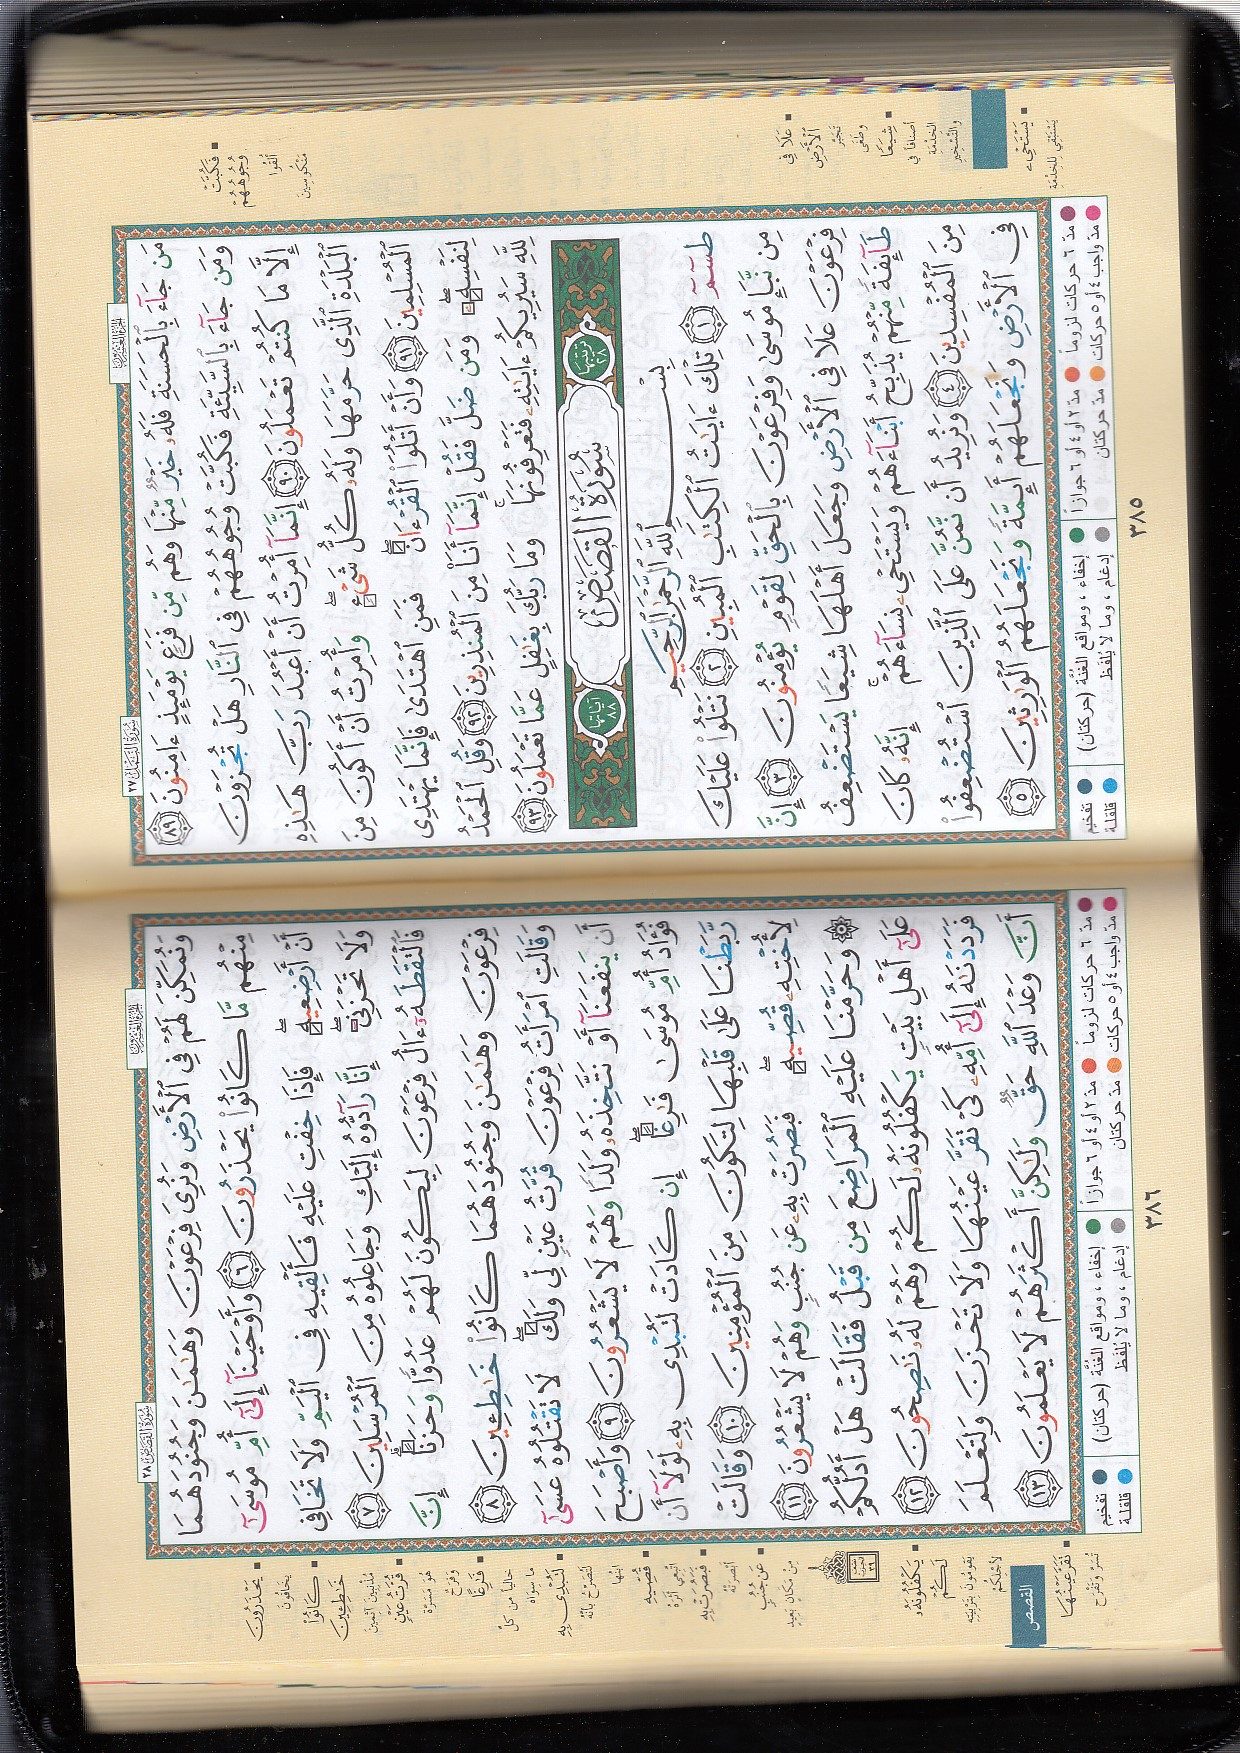 سُورَةُ النَّمْلِ ٢٧
الجُزْءُ العِشْرُونَ
مَن جَآءَ بِٱلْحَسَنَةِ فَلَهُۥ خَيْرٌ مِّنْهَا وَهُم مِّن فَزَعٍ يَوْمَئِذٍ ءَامِنُونَ ﴿٨٩﴾
وَمَن جَآءَ بِٱلسَّيِّئَةِ فَكُبَّتْ وُجُوهُهُمْ فِى ٱلنَّارِ هَلْ تُجْزَوْنَ
إِلَّا مَا كُنتُمْ تَعْمَلُونَ ﴿٩٠﴾ إِنَّمَآ أُمِرْتُ أَنْ أَعْبُدَ رَبَّ هَـٰذِهِ
ٱلْبَلْدَةِ ٱلَّذِى حَرَّمَهَا وَلَهُۥ كُلُّ شَىْءٍ ۖ وَأُمِرْتُ أَنْ أَكُونَ مِنَ
ٱلْمُسْلِمِينَ ﴿٩١﴾ وَأَنْ أَتْلُوَا۟ ٱلْقُرْءَانَ ۖ فَمَنِ ٱهْتَدَىٰ فَإِنَّمَا يَهْتَدِى
لِنَفْسِهِۦ ۖ وَمَن ضَلَّ فَقُلْ إِنَّمَآ أَنَا۠ مِنَ ٱلْمُنذِرِينَ ﴿٩٢﴾ وَقُلِ ٱلْحَمْدُ
لِلَّهِ سَيُرِيكُمْ ءَايَـٰتِهِۦ فَتَعْرِفُونَهَا ۚ وَمَا رَبُّكَ بِغَـٰفِلٍ عَمَّا تَعْمَلُونَ ﴿٩٣﴾
ترتيبها ٢٨ سُورَةُ القَصَصِ آياتها ٨٨
بِسْمِ ٱللَّهِ ٱلرَّحْمَـٰنِ ٱلرَّحِيمِ
طسٓمٓ ﴿١﴾ تِلْكَ ءَايَـٰتُ ٱلْكِتَـٰبِ ٱلْمُبِينِ ﴿٢﴾ نَتْلُوا۟ عَلَيْكَ
مِن نَّبَإِ مُوسَىٰ وَفِرْعَوْنَ بِٱلْحَقِّ لِقَوْمٍ يُؤْمِنُونَ ﴿٣﴾ إِنَّ
فِرْعَوْنَ عَلَا فِى ٱلْأَرْضِ وَجَعَلَ أَهْلَهَا شِيَعًا يَسْتَضْعِفُ
طَآئِفَةً مِّنْهُمْ يُذَبِّحُ أَبْنَآءَهُمْ وَيَسْتَحْىِۦ نِسَآءَهُمْ ۚ إِنَّهُۥ كَانَ
مِنَ ٱلْمُفْسِدِينَ ﴿٤﴾ وَنُرِيدُ أَن نَّمُنَّ عَلَى ٱلَّذِينَ ٱسْتُضْعِفُوا۟
فِى ٱلْأَرْضِ وَنَجْعَلَهُمْ أَئِمَّةً وَنَجْعَلَهُمُ ٱلْوَٰرِثِينَ ﴿٥﴾
فَكُبَّتْ
وُجُوهُهُمْ
أُلْقُوا
مَنْكُوسِينَ
عَلَا فِي
ٱلْأَرْضِ
تَجَبَّرَ
وَطَغَى
شِيَعًا
أصنافاً في
الخدمة
والتسخير
يَسْتَحْىِۦ
يَسْتَبْقِي لِلخِدْمَةِ
مدّ ٦ حركات لزوماً مدّ ٢ أو ٤ أو ٦ جوازاً إخفاء، ومواقع الغُنَّة (حركتان) تفخيم
مدّ واجب ٤ أو ٥ حركات مدّ حركتان إدغام، وما لا يُلفَظ قلقلة
٣٨٥
الجُزْءُ العِشْرُونَ
سُورَةُ القَصَصِ ٢٨
وَنُمَكِّنَ لَهُمْ فِى ٱلْأَرْضِ وَنُرِىَ فِرْعَوْنَ وَهَـٰمَـٰنَ وَجُنُودَهُمَا
مِنْهُم مَّا كَانُوا۟ يَحْذَرُونَ ﴿٦﴾ وَأَوْحَيْنَآ إِلَىٰٓ أُمِّ مُوسَىٰٓ
أَنْ أَرْضِعِيهِ ۖ فَإِذَا خِفْتِ عَلَيْهِ فَأَلْقِيهِ فِى ٱلْيَمِّ وَلَا تَخَافِى
وَلَا تَحْزَنِىٓ ۖ إِنَّا رَآدُّوهُ إِلَيْكِ وَجَاعِلُوهُ مِنَ ٱلْمُرْسَلِينَ ﴿٧﴾
فَٱلْتَقَطَهُۥٓ ءَالُ فِرْعَوْنَ لِيَكُونَ لَهُمْ عَدُوًّا وَحَزَنًا ۗ إِنَّ
فِرْعَوْنَ وَهَـٰمَـٰنَ وَجُنُودَهُمَا كَانُوا۟ خَـٰطِـِٔينَ ﴿٨﴾
وَقَالَتِ ٱمْرَأَتُ فِرْعَوْنَ قُرَّتُ عَيْنٍ لِّى وَلَكَ ۖ لَا تَقْتُلُوهُ عَسَىٰٓ
أَن يَنفَعَنَآ أَوْ نَتَّخِذَهُۥ وَلَدًا وَهُمْ لَا يَشْعُرُونَ ﴿٩﴾ وَأَصْبَحَ
فُؤَادُ أُمِّ مُوسَىٰ فَـٰرِغًا ۖ إِن كَادَتْ لَتُبْدِى بِهِۦ لَوْلَآ أَن
رَّبَطْنَا عَلَىٰ قَلْبِهَا لِتَكُونَ مِنَ ٱلْمُؤْمِنِينَ ﴿١٠﴾ وَقَالَتْ
لِأُخْتِهِۦ قُصِّيهِ ۖ فَبَصُرَتْ بِهِۦ عَن جُنُبٍ وَهُمْ لَا يَشْعُرُونَ ﴿١١﴾
۞ وَحَرَّمْنَا عَلَيْهِ ٱلْمَرَاضِعَ مِن قَبْلُ فَقَالَتْ هَلْ أَدُلُّكُمْ
عَلَىٰٓ أَهْلِ بَيْتٍ يَكْفُلُونَهُۥ لَكُمْ وَهُمْ لَهُۥ نَـٰصِحُونَ ﴿١٢﴾
فَرَدَدْنَـٰهُ إِلَىٰٓ أُمِّهِۦ كَىْ تَقَرَّ عَيْنُهَا وَلَا تَحْزَنَ وَلِتَعْلَمَ
أَنَّ وَعْدَ ٱللَّهِ حَقٌّ وَلَـٰكِنَّ أَكْثَرَهُمْ لَا يَعْلَمُونَ ﴿١٣﴾
يَحْذَرُونَ
يَخَافُونَ
كَانُوا۟
خَـٰطِـِٔينَ
مُذْنِبِينَ آثِمِينَ
قُرَّتُ عَيْنٍ
هُوَ مَسَرَّةٌ
وَفَرَحٌ
فَـٰرِغًا
خالياً من كلّ
ما سِوَاهُ
لَتُبْدِى بِهِۦ
لَتُصَرِّحُ بأنَّهُ
ابْنُهَا
قُصِّيهِ
اتَّبِعِي أَثَرَهُ
فَبَصُرَتْ بِهِۦ
أَبْصَرَتْهُ
عَن جُنُبٍ
مِنْ مَكَانٍ بَعِيدٍ
٣٩
يَكْفُلُونَهُۥ
لَكُمْ
يَقُومُونَ بِتَرْبِيَتِهِ
لأجْلِكُم
القصص
تَقَرَّ عَيْنُهَا
تُسَرَّ وَتَفْرَحَ
مدّ ٦ حركات لزوماً مدّ ٢ أو ٤ أو ٦ جوازاً إخفاء، ومواقع الغُنَّة (حركتان) تفخيم
مدّ واجب ٤ أو ٥ حركات مدّ حركتان إدغام، وما لا يُلفَظ قلقلة
٣٨٦